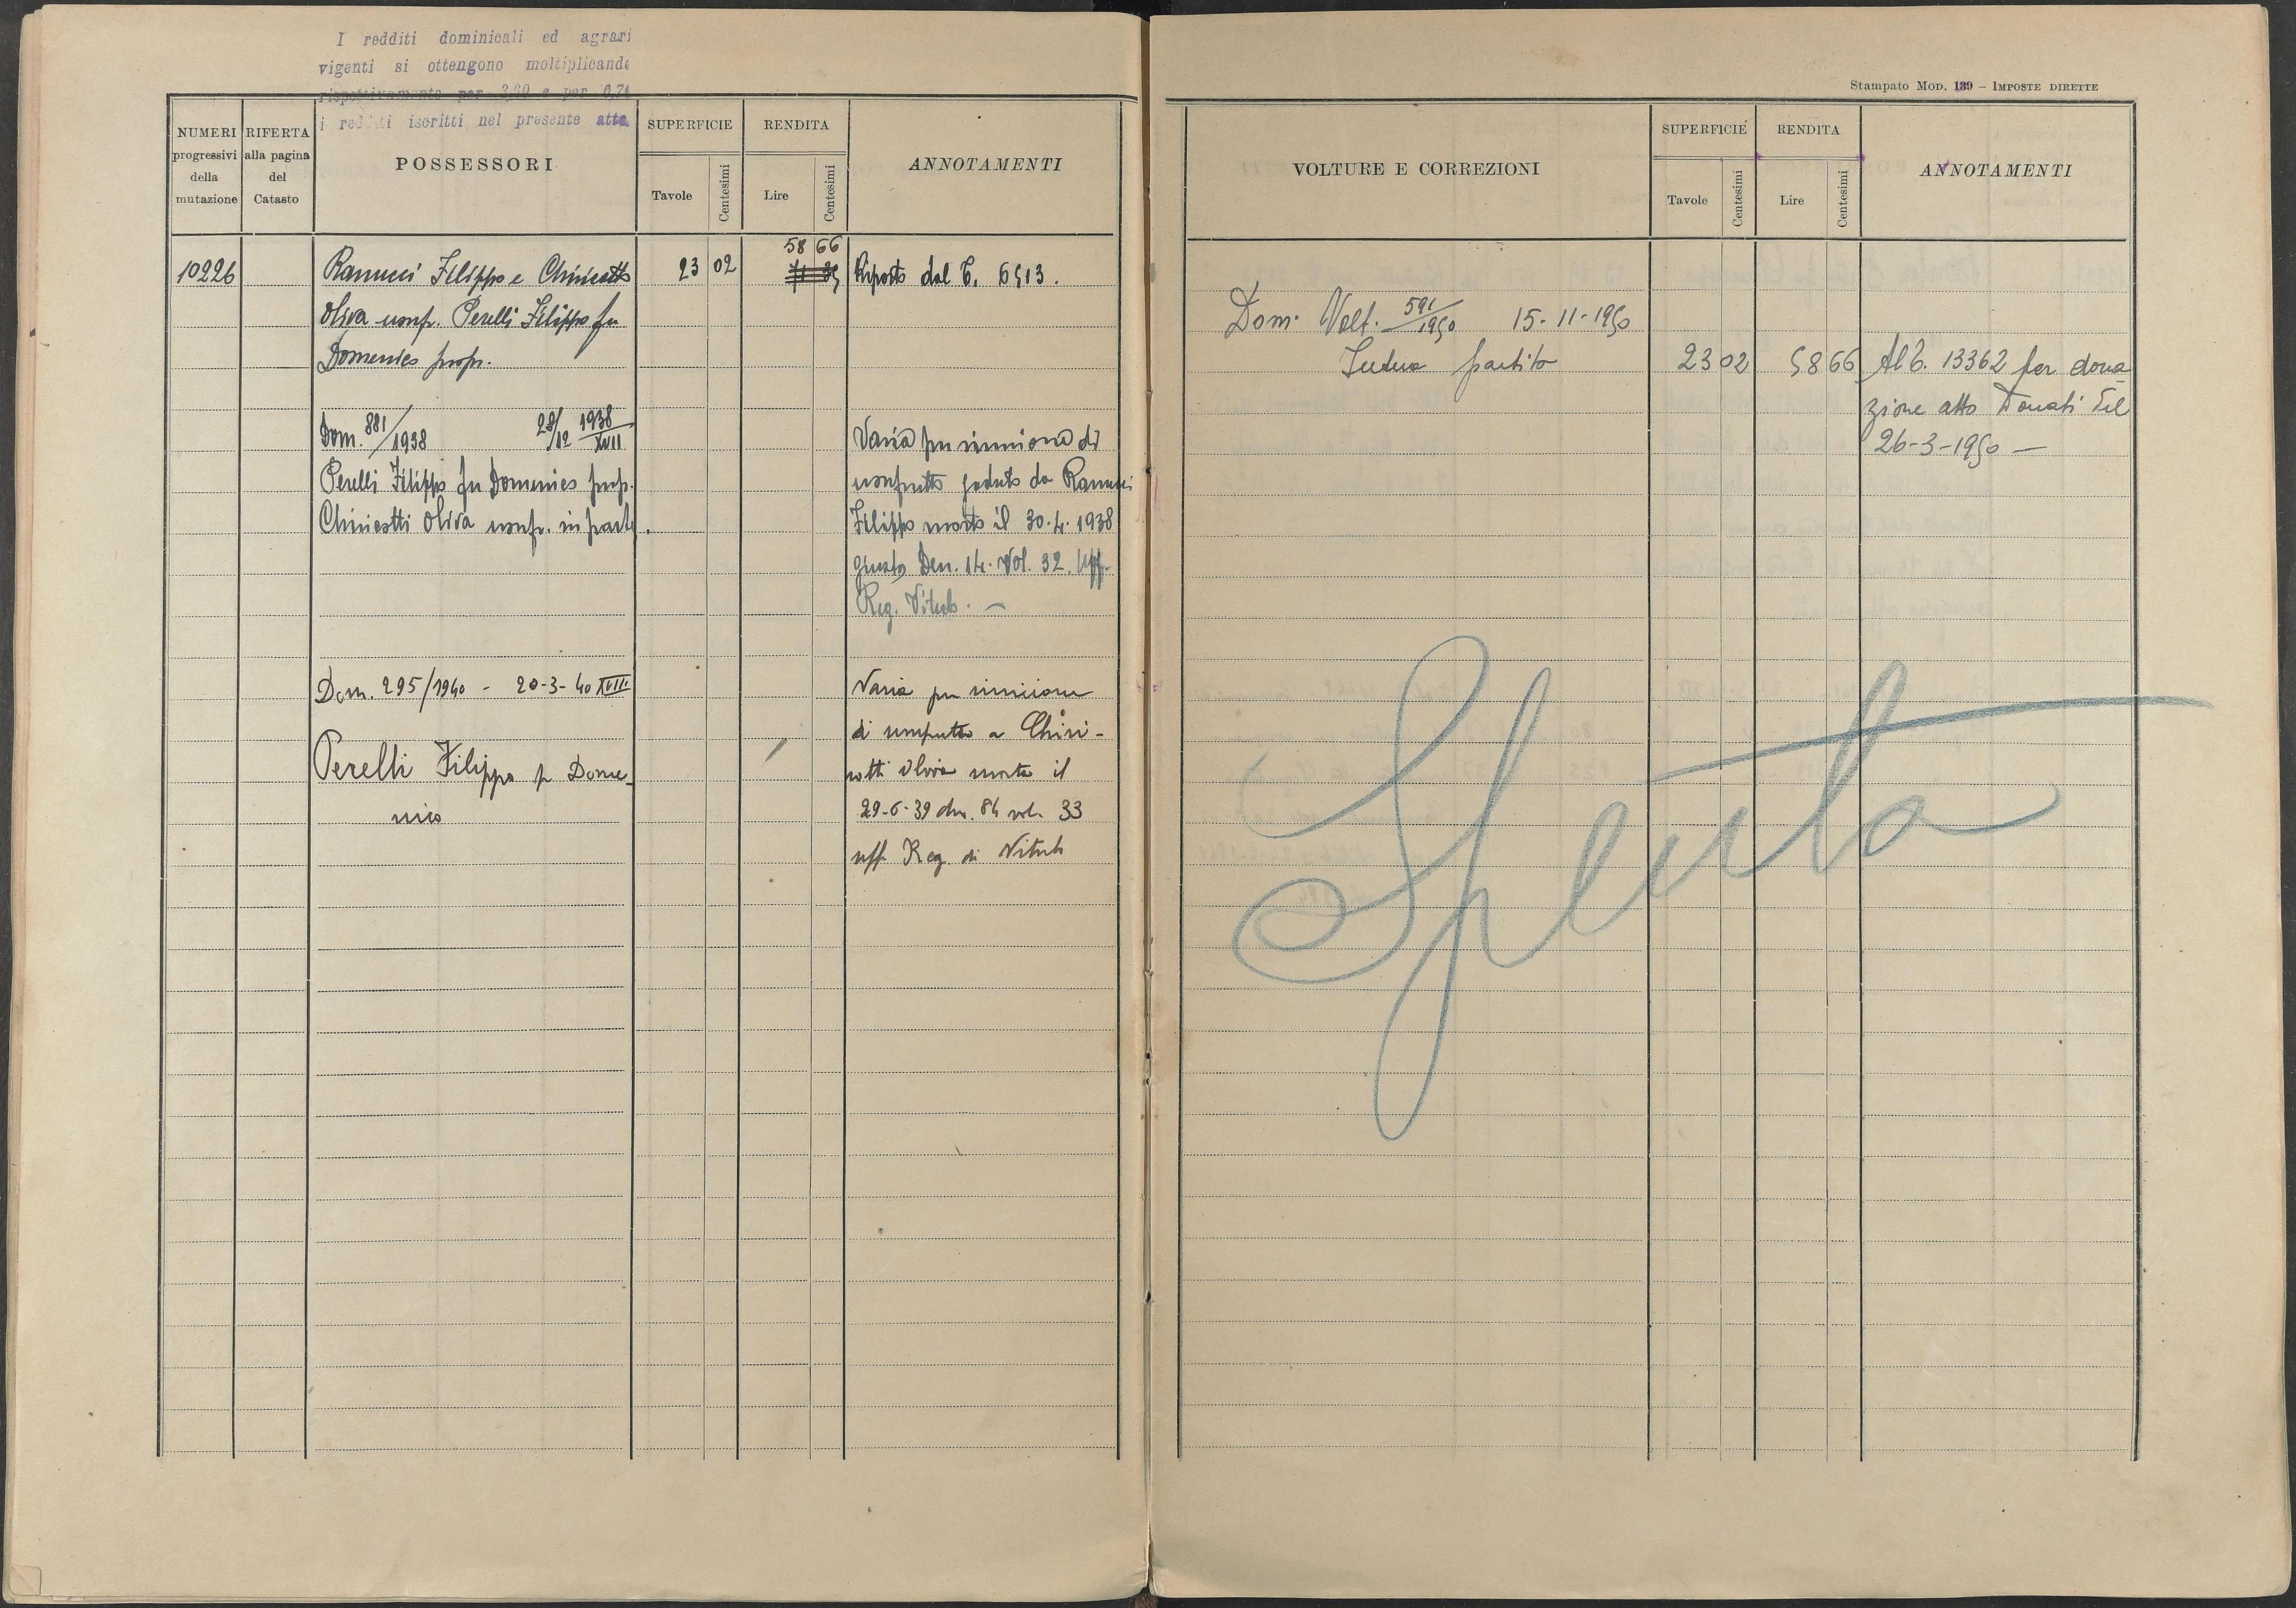 I redditi dominicali ed agrari
vigenti si ottengono moltiplicando
rispettivamente per 3,20 e per 0,74
i redditi iscritti nel presente atto.
NUMERI
progressivi
della
mutazione
RIFERTA
alla pagina
del
Catasto
POSSESSORI
SUPERFICIE
Tavole
Centesimi
RENDITA
Lire
Centesimi
ANNOTAMENTI
58 66
10226 Ranucci Filippo e Chiricotti 23 02 Riposto dal C. 6513.
Oliva usufr. Perelli Filippo fu
Domenico propr.
Dom. 881/1938 28/12 1938 XVII
Perelli Filippo fu Domenico prop.
Chiricotti Oliva usufr. in parte.
Varia per riunione di
usufrutto goduto da Ranucci
Filippo morto il 30.4.1938
giusta Den. 14. Vol. 32. Uff.
Reg. Viterb. —
Dom. 295/1940 - 20-3-40 XVIII
Perelli Filippo fu Dome-
nico
Varia per riunione
di usufrutto a Chiri-
cotti Oliva morta il
29-6-39 den. 84 vol. 33
uff. Reg. di Viterb
Stampato Mod. 139 – Imposte dirette
VOLTURE E CORREZIONI
SUPERFICIE
Tavole
Centesimi
RENDITA
Lire
Centesimi
ANNOTAMENTI
Dom. Volt. 591/1950 15-11-1950
Intera partita 23 02 58 66 Al C. 13362 per dona-
zione atto Donati del
26-3-1950 —
Spenta